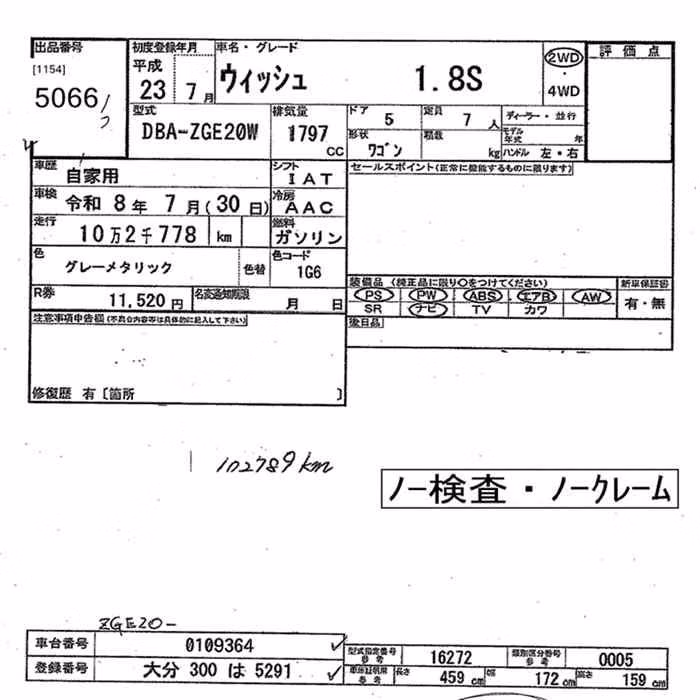 出品番号 初度登録年月 車名・グレード 評価点
[1154] 平成 ウィッシュ 1.8S 2WD
5066 23 7月 ・ 4WD
型式 排気量 ドア 5 定員 7人 ディーラー・並行
DBA-ZGE20W 1797 CC 形状 ワゴン 積数 kg モデル年式 年
ハンドル 左・右
車歴 自家用 シフト IAT セールスポイント(正常に機能するものに限ります)
車検 令和 8年 7月(30日) 冷房 AAC
走行 10万2千778 km 燃料 ガソリン
色 グレーメタリック 色替 色コード 1G6
装備品 (純正品に限り○をつけてください) 新車保証書
R券 11,520円 名変通知期限 月 日 PS PW ABS エアB AW 有・無
SR ナビ TV カワ
注意事項申告欄(不具合内容等は具体的に記入して下さい) 後日品
修復歴 有〔箇所 〕
102789km
ノー検査・ノークレーム
ZGE20-
車台番号 0109364 型式指定番号 参考 16272 類別区分番号 参考 0005
登録番号 大分 300 は 5291 車庫証明用 参考 長さ 459cm 幅 172cm 高さ 159cm